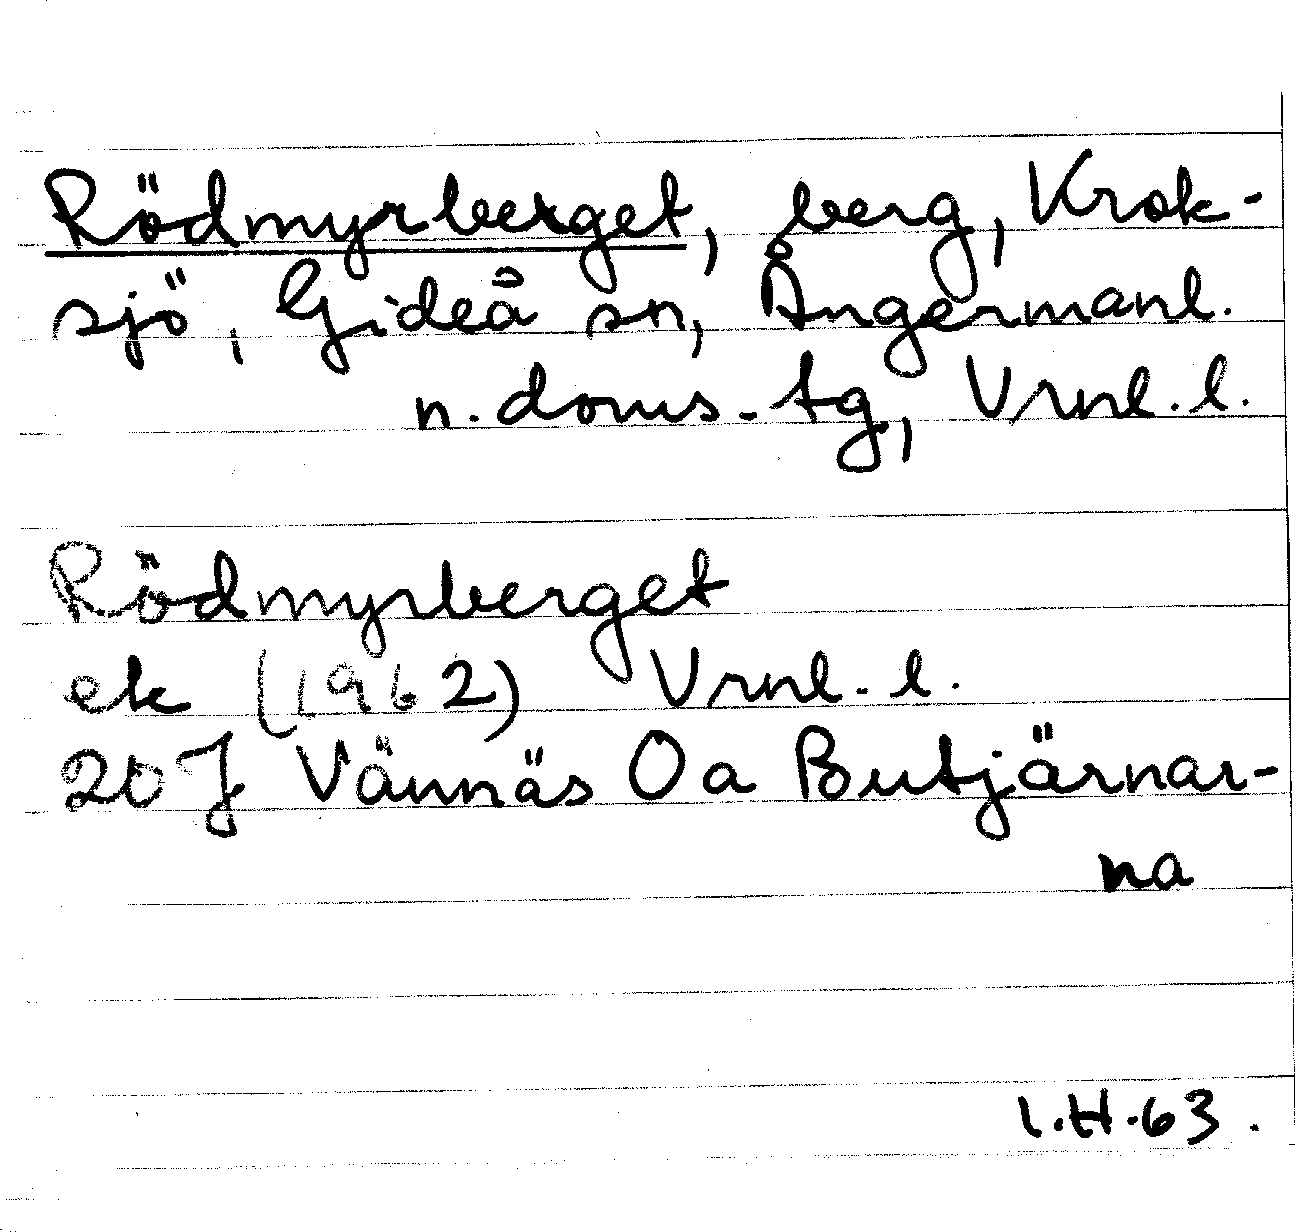 Rödmyrberget, berg, Krok-
sjö, Gideå sn, Ångermanl.
n. doms. tg, Vrnl. l.
Rödmyrberget
ek (1962) Vrnl. l.
20 J Vännäs Oa Butjärnar-
na
I.H.63.